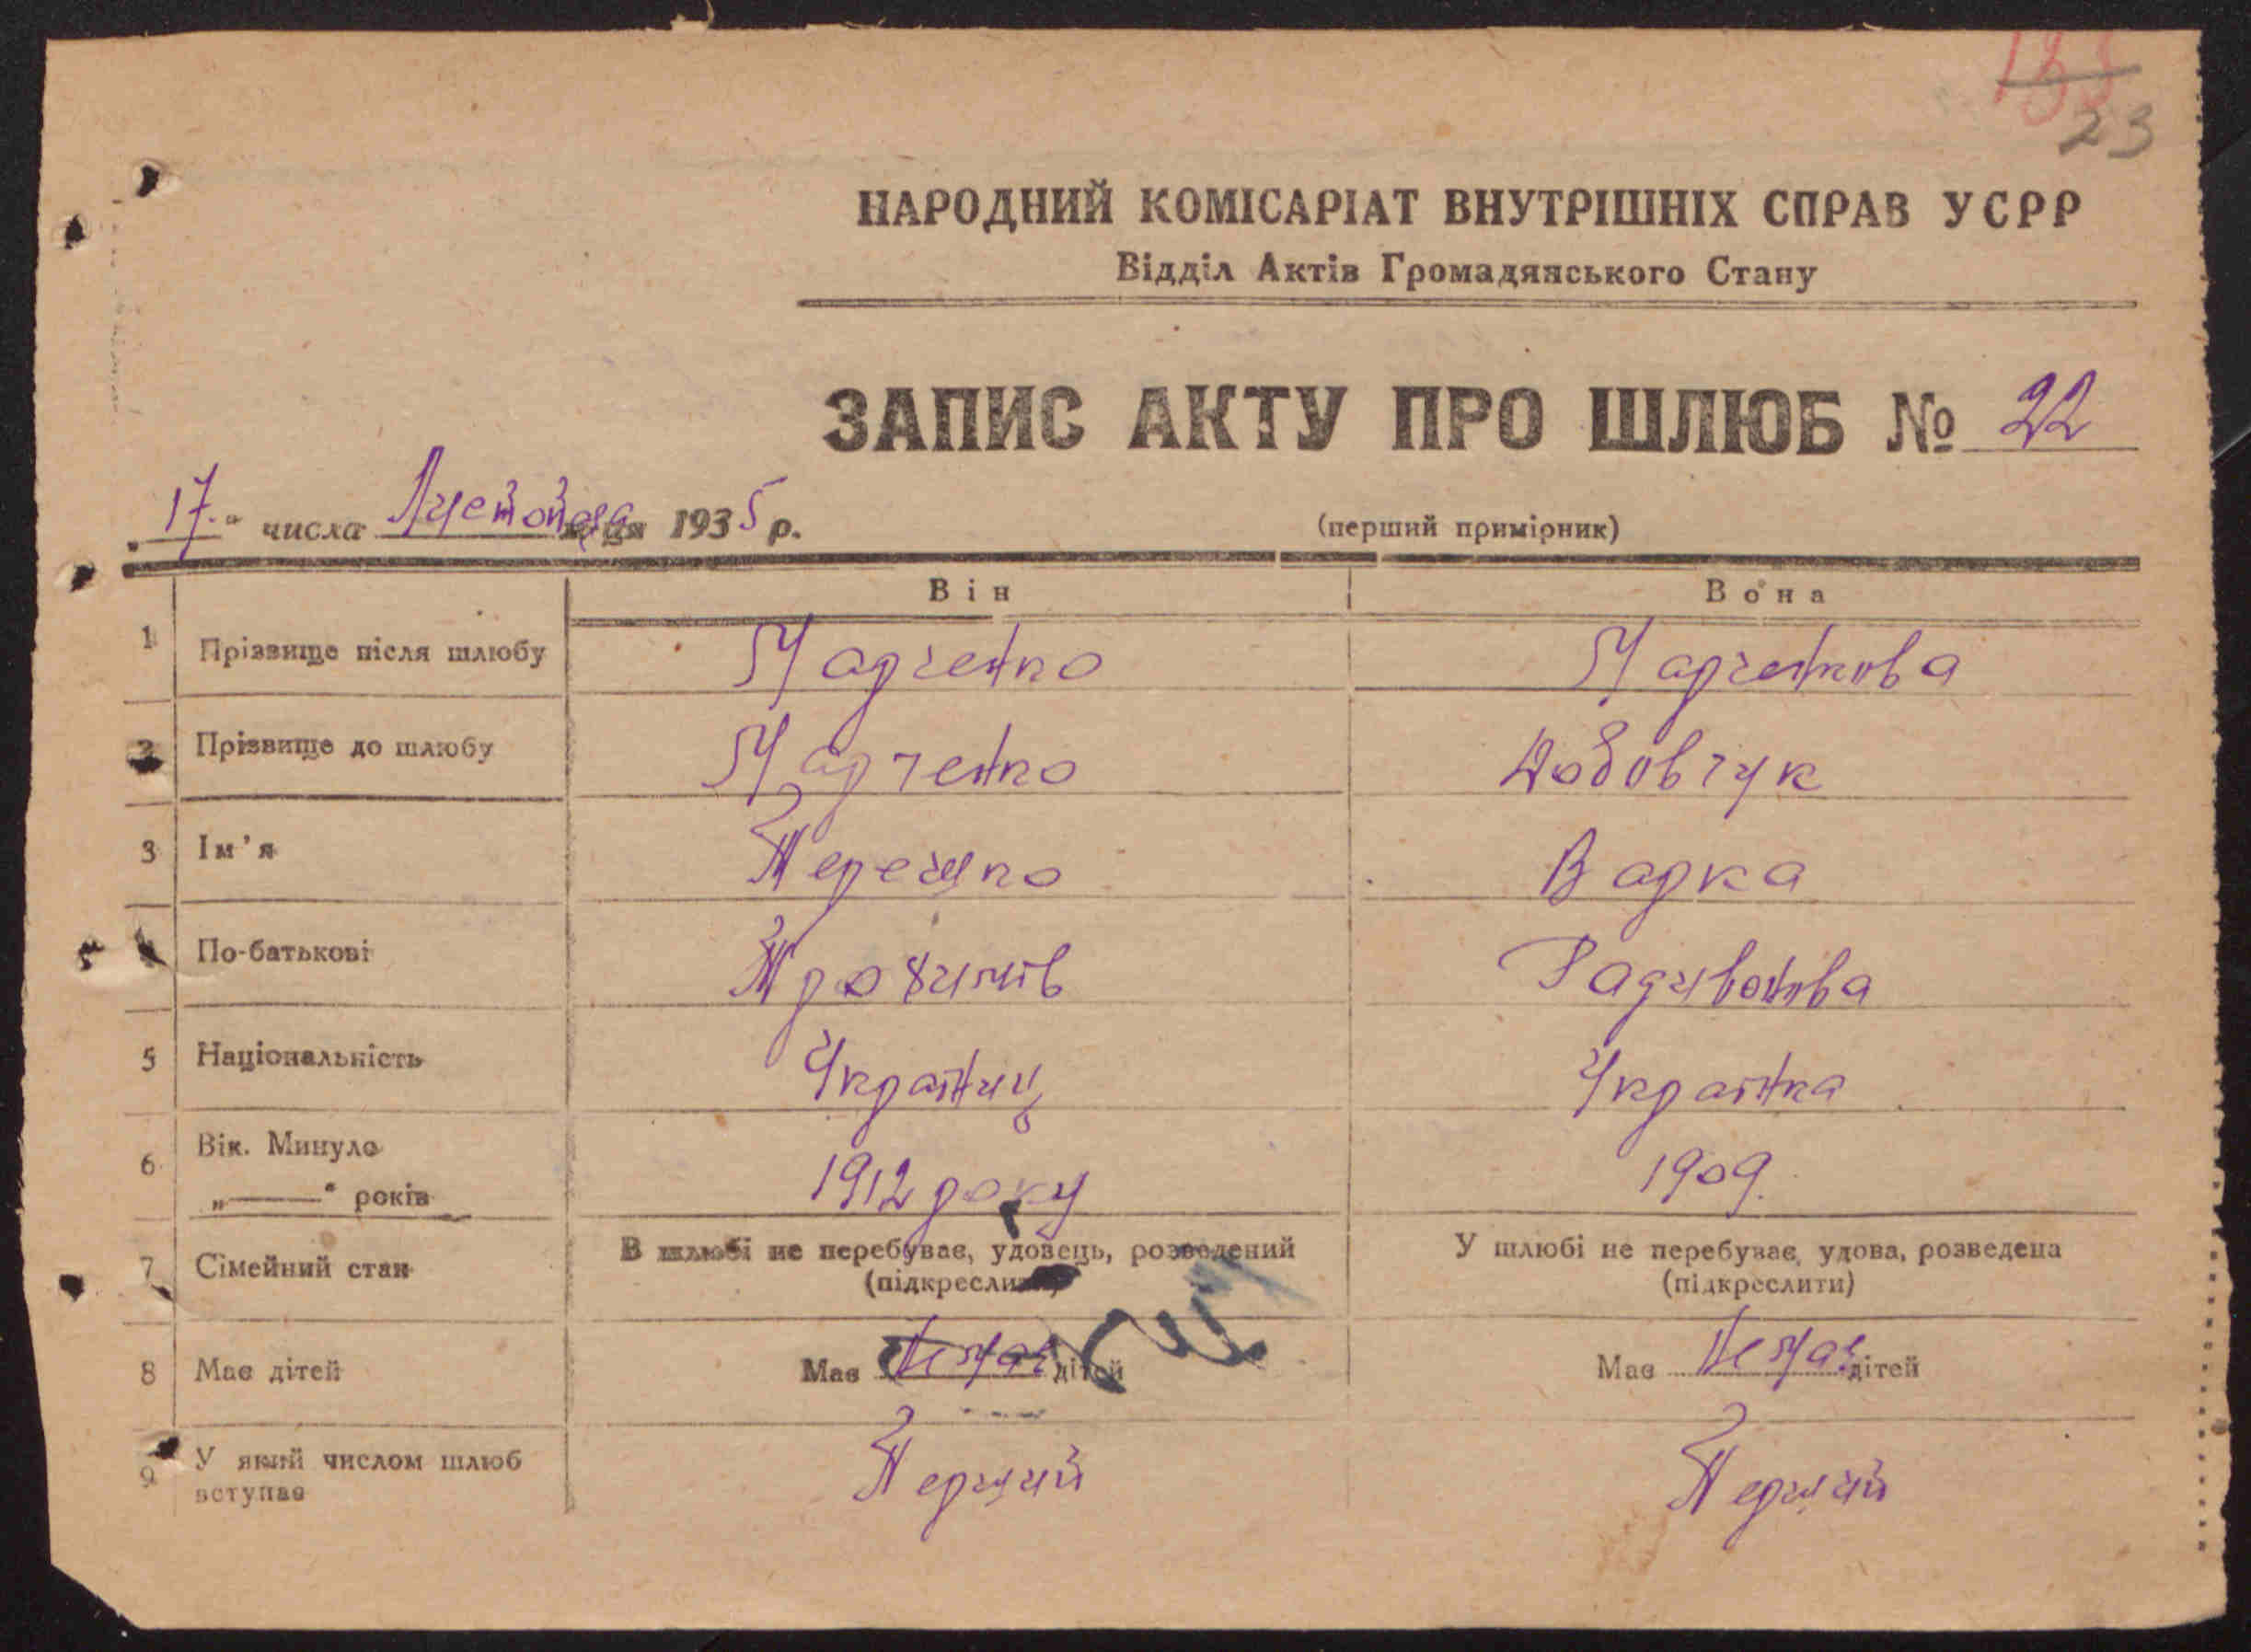 23
НАРОДНИЙ КОМІСАРІАТ ВНУТРІШНІХ СПРАВ УСРР
Відділ Актів Громадянського Стану
ЗАПИС АКТУ ПРО ШЛЮБ № 22
„17“ числа місяця 1935 р.
(перший примірник)
Він Вона
1 Прізвище після шлюбу Марченко Марченкова
2 Прізвище до шлюбу Марченко Вобовчук
3 Ім'я Варка
4 По-батькові Трохимів Радивонова
5 Національність Українц Українка
6 Вік. Минуло 1912 року 1909.
„——“ років
7 Сімейний стан В шлюбі не перебуває, удовець, розведений У шлюбі не перебуває, удова, розведена
(підкреслити) (підкреслити)
8 Має дітей Має Немає дітей Має Немає дітей
9 У який числом шлюб вступає Перший Перший